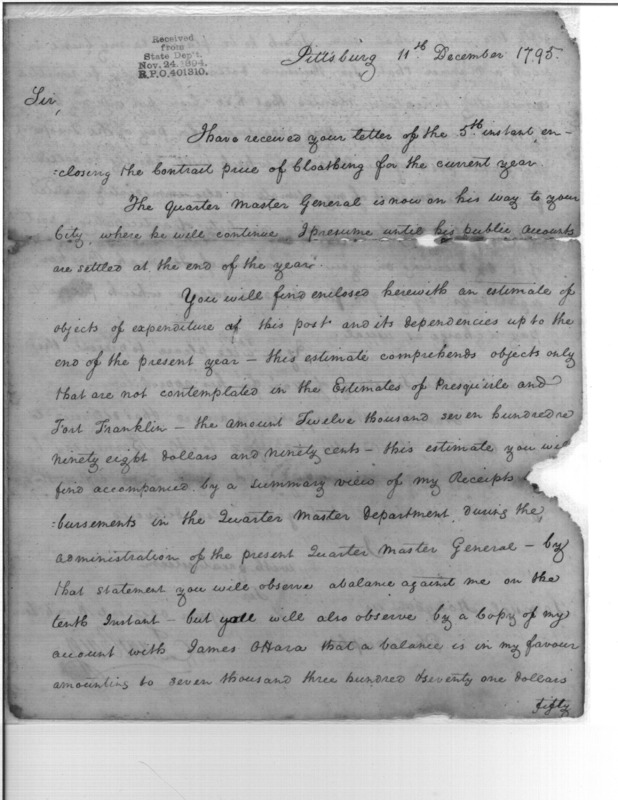 Received
from
State Dep't.
Nov. 24. 1894.
R.P.O. 401310.
Pittsburg 11th December 1795.
Sir,
I have received your letter of the 5th instant, en-
-closing the Contract price of Cloathing for the current year.
The Quarter Master General is now on his way to your
City, where he will continue I presume until his public accounts
are settled at the end of the year.
You will find enclosed herewith an estimate of
objects of expenditure of this post and its dependencies up to the
end of the present year – this estimate comprehends objects only
that are not contemplated in the Estimates of Presquisle and
Fort Franklin – the amount Twelve thousand seven hundred
ninety eight dollars and ninety cents – this estimate you
find accompanied by a summary view of my Receipts
-bursements in the Quarter Master Department, during the
administration of the present Quarter Master General – by
that statement you will observe a balance against me on the
tenth Instant – but you will also observe by a Copy of my
account with James OHara that a balance is in my favour
amounting to seven thousand three hundred & seventy one dollars
fifty